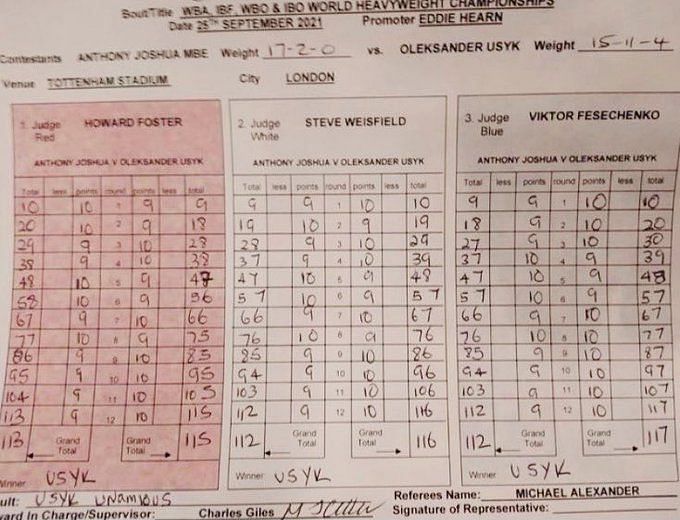 Bout/Title WBA, IBF, WBO & IBO WORLD HEAVYWEIGHT CHAMPIONSHIPS
Date 25TH SEPTEMBER 2021 Promoter EDDIE HEARN
Contestants ANTHONY JOSHUA MBE Weight 17-2-0 vs. OLEKSANDER USYK Weight 15-11-4
Venue TOTTENHAM STADIUM City LONDON
1. Judge HOWARD FOSTER
Red
ANTHONY JOSHUA V OLEKSANDER USYK
Total less points round points less total
10 10 1 9 9
20 10 2 9 18
29 9 3 10 28
38 9 4 10 38
48 10 5 9 47
58 10 6 9 56
67 9 7 10 66
77 10 8 9 75
86 9 9 10 85
95 9 10 10 95
104 9 11 10 105
113 9 12 10 115
113 Grand Total Grand Total 115
Winner USYK
2. Judge STEVE WEISFIELD
White
ANTHONY JOSHUA V OLEKSANDER USYK
Total less points round points less total
9 9 1 10 10
19 10 2 9 19
28 9 3 10 29
37 9 4 10 39
47 10 5 9 48
57 10 6 9 57
66 9 7 10 67
76 10 8 9 76
85 9 9 10 86
94 9 10 10 96
103 9 11 10 106
112 9 12 10 116
112 Grand Total Grand Total 116
Winner USYK
3. Judge VIKTOR FESECHENKO
Blue
ANTHONY JOSHUA V OLEKSANDER USYK
Total less points round points less total
9 9 1 10 10
18 9 2 10 20
27 9 3 10 30
37 10 4 9 39
47 10 5 9 48
57 10 6 9 57
66 9 7 10 67
76 10 8 10 77
85 9 9 10 87
94 9 10 10 97
103 9 11 10 107
112 9 12 10 117
112 Grand Total Grand Total 117
Winner USYK
ult: USYK UNAMIOUS Referees Name: MICHAEL ALEXANDER
ward In Charge/Supervisor: Charles Giles Signature of Representative: